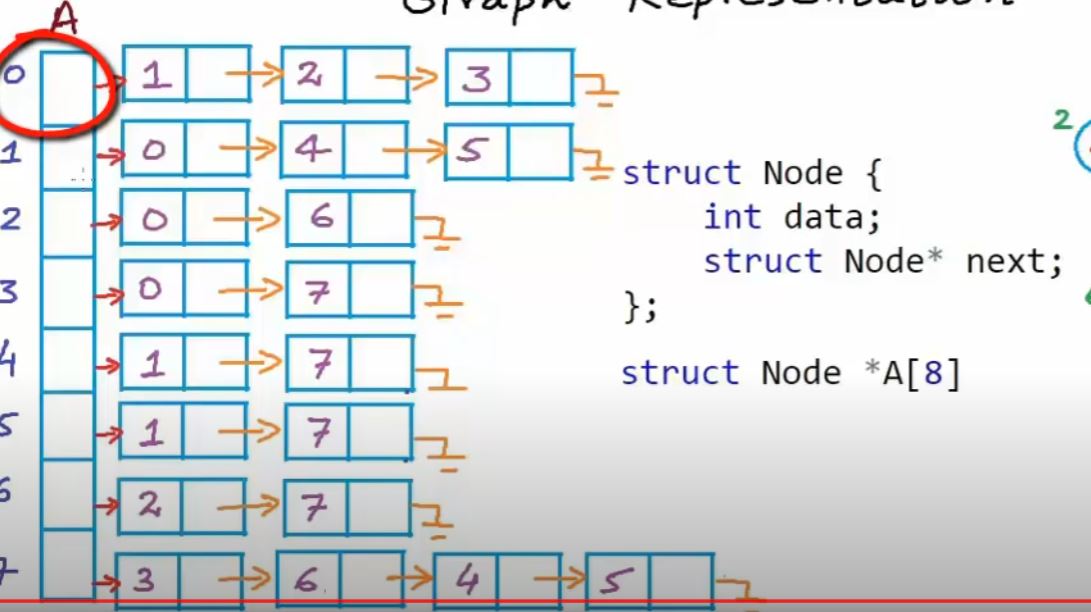 Graph Representation
A
0 1 2 3
1 0 4 5
2 0 6
3 0 7
4 1 7
5 1 7
6 2 7
7 3 6 4 5
struct Node {
int data;
struct Node* next;
};
struct Node *A[8]
2